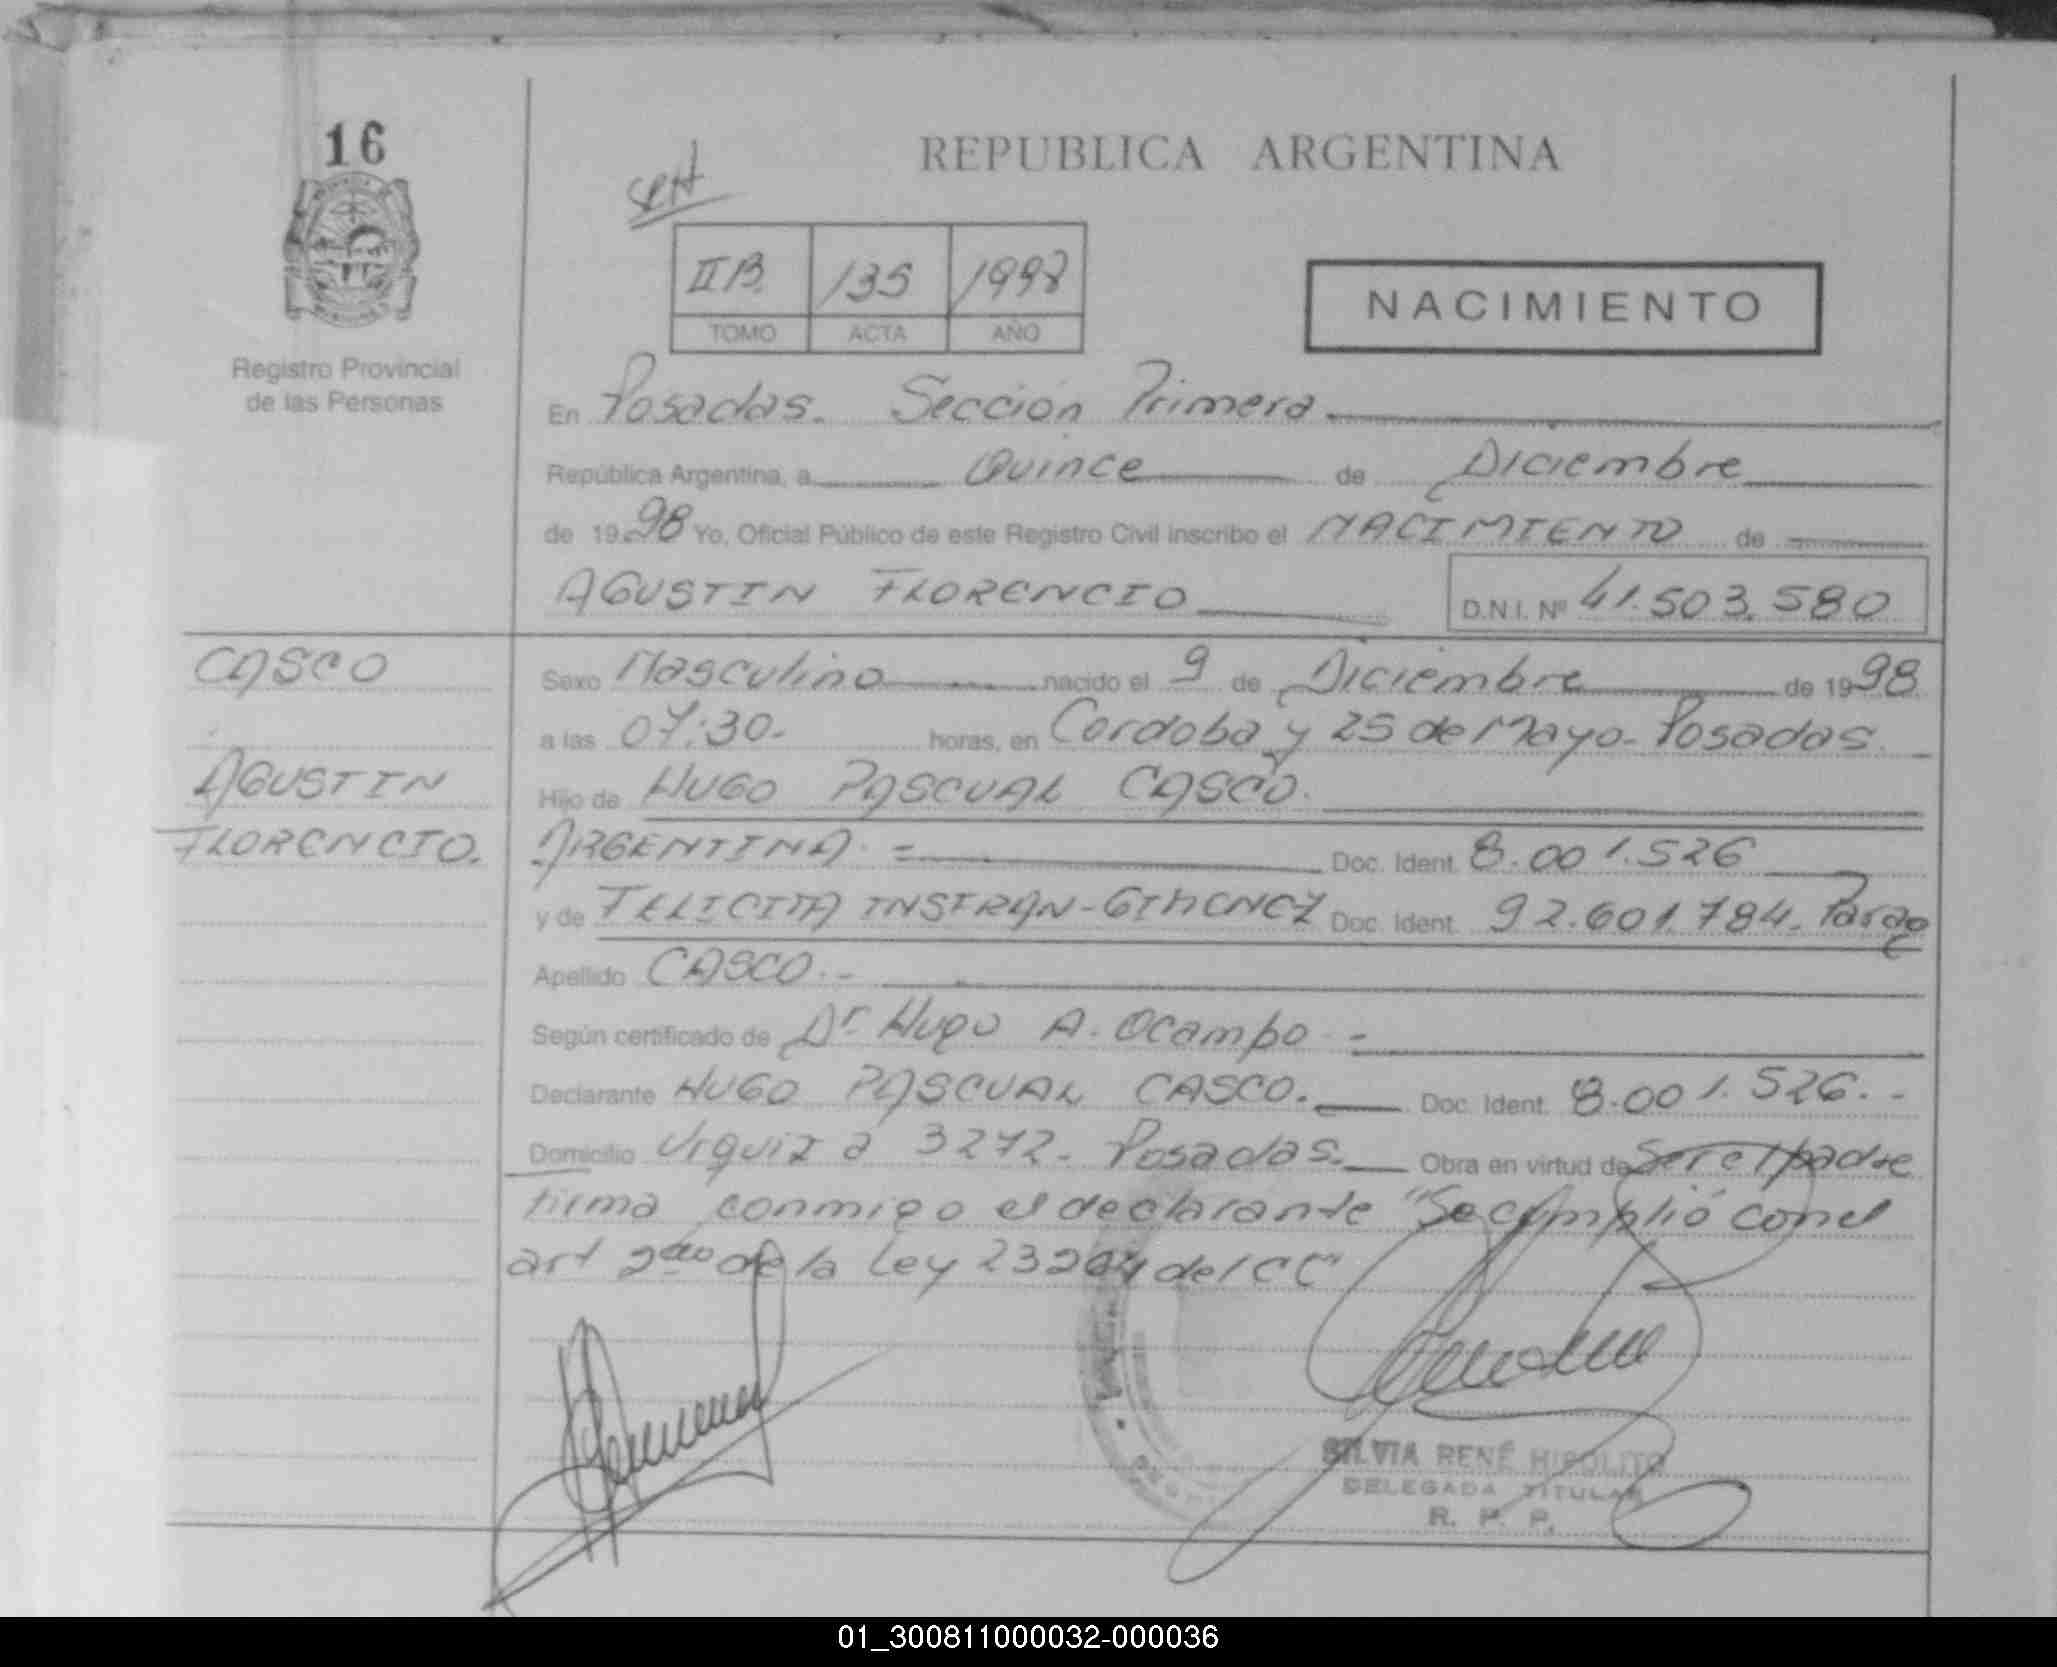 16
REPUBLICA ARGENTINA
II B. 135 1998
TOMO ACTA AÑO
NACIMIENTO
Registro Provincial
de las Personas
En Posadas. Sección Primera
República Argentina, a Quince de Diciembre
de 1998 Yo, Oficial Público de este Registro Civil inscribo el NACIMIENTO de
AGUSTIN FLORENCIO D.N.I. Nº 41.503.580
CASCO
AGUSTIN
FLORENCIO.
Sexo Masculino nacido el 9 de Diciembre de 1998
a las 07:30. horas, en Cordoba y 25 de Mayo - Posadas
Hijo de HUGO PASCUAL CASCO.
ARGENTINA. Doc. Ident. 8.001.526
y de FELICITA INSFRAN-GIMENEZ Doc. Ident. 92.601.784. Parag
Apellido CASCO.-
Según certificado de Dr Hugo A. Ocampo -
Declarante HUGO PASCUAL CASCO. Doc. Ident. 8.001.526.-
Domicilio Urquiza 3272- Posadas. Obra en virtud de Ser el padre
firma conmigo el declarante "Se cumplió con el
art 2do de la Ley 23264 del CC"
SILVIA RENÉ HIPOLITO
DELEGADA TITULAR
R. P. P.
01_300811000032-000036